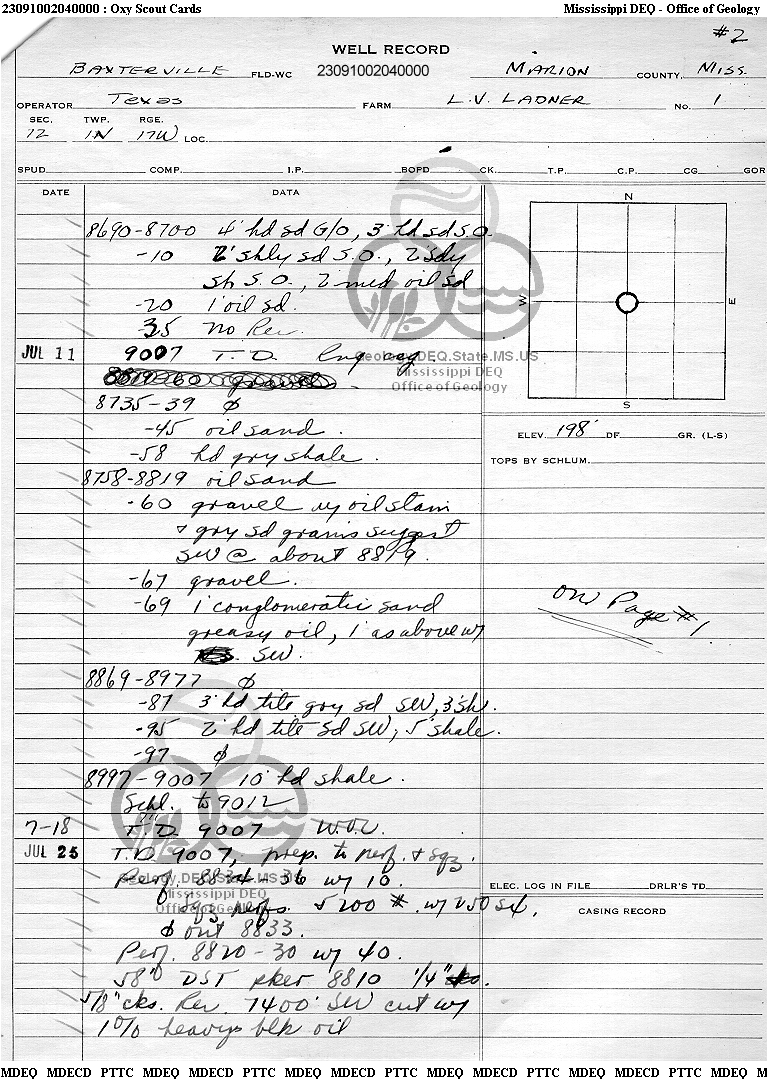 23091002040000 : Oxy Scout Cards Mississippi DEQ - Office of Geology
#2
WELL RECORD
BAXTERVILLE FLD-WC 23091002040000 MARION COUNTY, MISS.
OPERATOR Texas FARM L.V. LADNER No. 1
SEC. TWP. RGE.
12 1N 17W LOC.
SPUD COMP. I.P. BOPD CK. T.P. C.P. CG GOR
DATE DATA
8690-8700 4' hd sd G/O, 3' hd sd S.O.
-10 2' shly sd S.O., 2' sdy
sh S.O., 2' med oil sd
-20 1' oil sd.
-35 no Rec.
JUL 11 9007 T.D. Rng csg.
8735-39 φ
-45 oil sand.
-58 hd gry shale.
8758-8819 oil sand
-60 gravel w/ oil stain
& gry sd grains suggest
SW @ about 8819.
-67 gravel.
-69 1' conglomeratic sand
greasy oil, 1' as above w/
SW.
8869-8977 φ
-87 3' hd tite gry sd SW, 3' sh.
-95 2' hd tite sd SW, 5' shale.
-97 φ
8997-9007 10' hd shale.
Schl. to 9012
7-18 T.D. 9007 W.O.C.
JUL 25 T.D. 9007, prep. to perf. & sqz.
Perf. 8834-36 w/ 10.
Sqz perfs. 5200 # w/ 250 sx,
φ out 8833.
Perf. 8820-30 w/ 40.
58" DST pker 8810 1/4"
5/8" cks. Rec. 7400' SW cut w/
1% heavy blk oil
N
W
E
S
ELEV. 198' DF. GR. (L-S)
TOPS BY SCHLUM.
OWS Page #1
ELEC. LOG IN FILE DRLR'S TD.
CASING RECORD
Geology.DEQ.State.MS.US
Mississippi DEQ
Office of Geology
Geology.DEQ.State.MS.US
Mississippi DEQ
Office of Geology
MDEQ MDECD PTTC MDEQ MDECD PTTC MDEQ MDECD PTTC MDEQ MDECD PTTC MDEQ MDECD PTTC MDEQ M